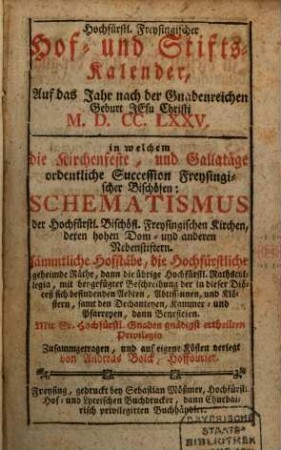 Hochfürstl. Freysingischer
Hof- und Stifts-
Kalender,
Auf das Jahr nach der Gnadenreichen
Geburt JEsu Christi
M. D. CC. LXXV.
in welchem
die Kirchenfeste, und Gallatäge
ordentliche Succession Freysingi-
scher Bischöfen:
SCHEMATISMUS
der Hochfürstl. Bischöfl. Freysingischen Kirchen,
deren hohen Dom- und anderen
Nebenstiftern.
sämmtliche Hofstäbe, die Hochfürstliche
geheimde Räthe, dann die übrige Hochfürstl. Rathscol-
legia, mit beygefügter Beschreibung der in dieser Diö-
ceß sich befindenden Aebten, Abtißinnen, und Klö-
stern, samt den Dechanteyen, Kammer- und
Pfarreyen, dann Beneficien.
Mit Sr. Hochfürstl. Gnaden gnädigst ertheiltem
Privilegio
Zusammgetragen, und auf eigene Kösten verlegt
von Andreas Bolck, Hoffourier.
Freysing, gedruckt bey Sebastian Mößmer, Hochfürstl.
Hof- und Lyceischen Buchdrucker, dann Churbai-
risch privilegirten Buchhändler.
BAYERISCHE
STAATS-
BIBLIOTHEK
MUENCHEN